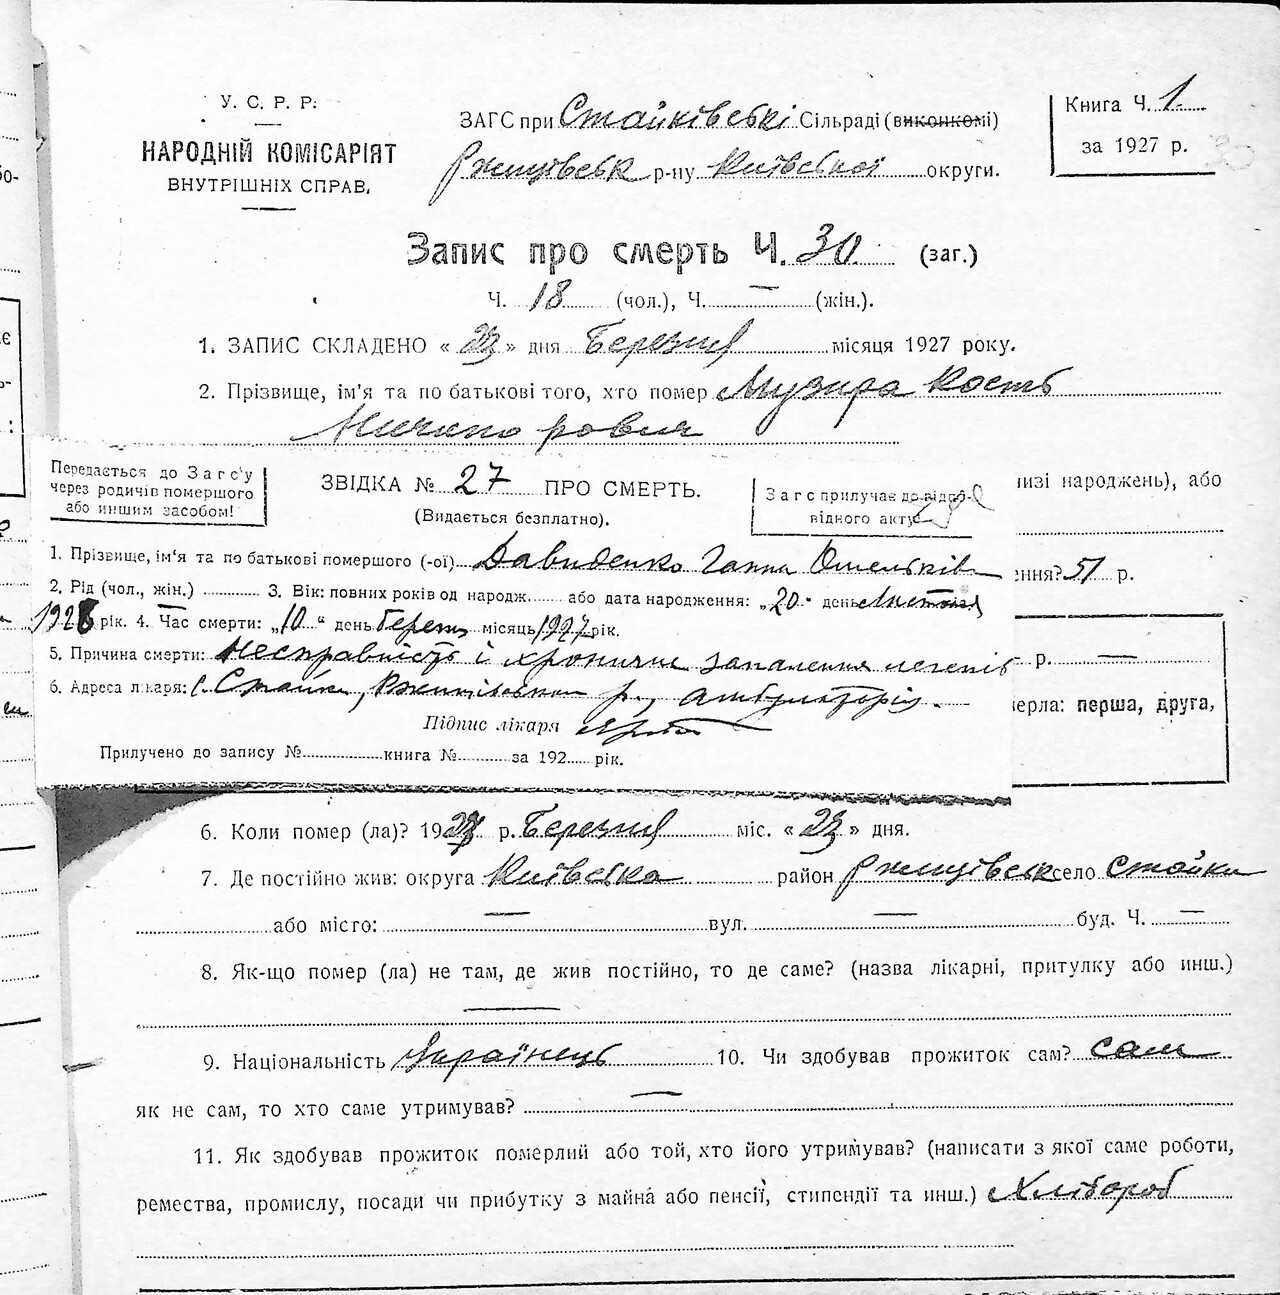 У. С. Р. Р.
НАРОДНІЙ КОМІСАРІЯТ
ВНУТРІШНІХ СПРАВ.
ЗАГС при Стайківські Сільраді (виконкомі)
Ржищівськ р-ну Київської округи.
Книга Ч. 1
за 1927 р.
30
Запис про смерть Ч. 30 (заг.)
Ч. 18 (чол.), Ч. — (жін.).
1. ЗАПИС СКЛАДЕНО « 23 » дня Березня місяця 1927 року.
2. Прізвище, ім'я та по батькові того, хто помер Музира Кость
Ничипорович
Передається до Загс'у
через родичів помершого
або иншим засобом!
ЗВІДКА № 27 ПРО СМЕРТЬ.
(Видається безплатно).
Загс прилучає до відпо-
відного акту
низі народжень), або
1. Прізвище, ім'я та по батькові помершого (-ої) Давиденко Ганна Омельківн
ення? 51 р.
2. Рід (чол., жін.) 3. Вік: повних років од народж. або дата народження: „20" день Листопад
1926 рік. 4. Час смерти: „10" день Березн місяць 1927 рік.
5. Причина смерти: і хронічне запалення легенів
р. —
6. Адреса лікаря: с. Стайки, Ржищівськ р., амбулаторія.
мерла: перша, друга,
Підпис лікаря
Прилучено до запису № книга № за 192 рік.
6. Коли помер (ла)? 1927 р. Березня міс. « 23 » дня.
7. Де постійно жив: округа Київська район Ржищівськ село Стайки
або місто: — вул. — буд. Ч. —
8. Як-що помер (ла) не там, де жив постійно, то де саме? (назва лікарні, притулку або инш.)
—
9. Національність Українець 10. Чи здобував прожиток сам? сам
як не сам, то хто саме утримував? —
11. Як здобував прожиток померлий або той, хто його утримував? (написати з якої саме роботи,
ремества, промислу, посади чи прибутку з майна або пенсії, стипендії та инш.) Хлібороб